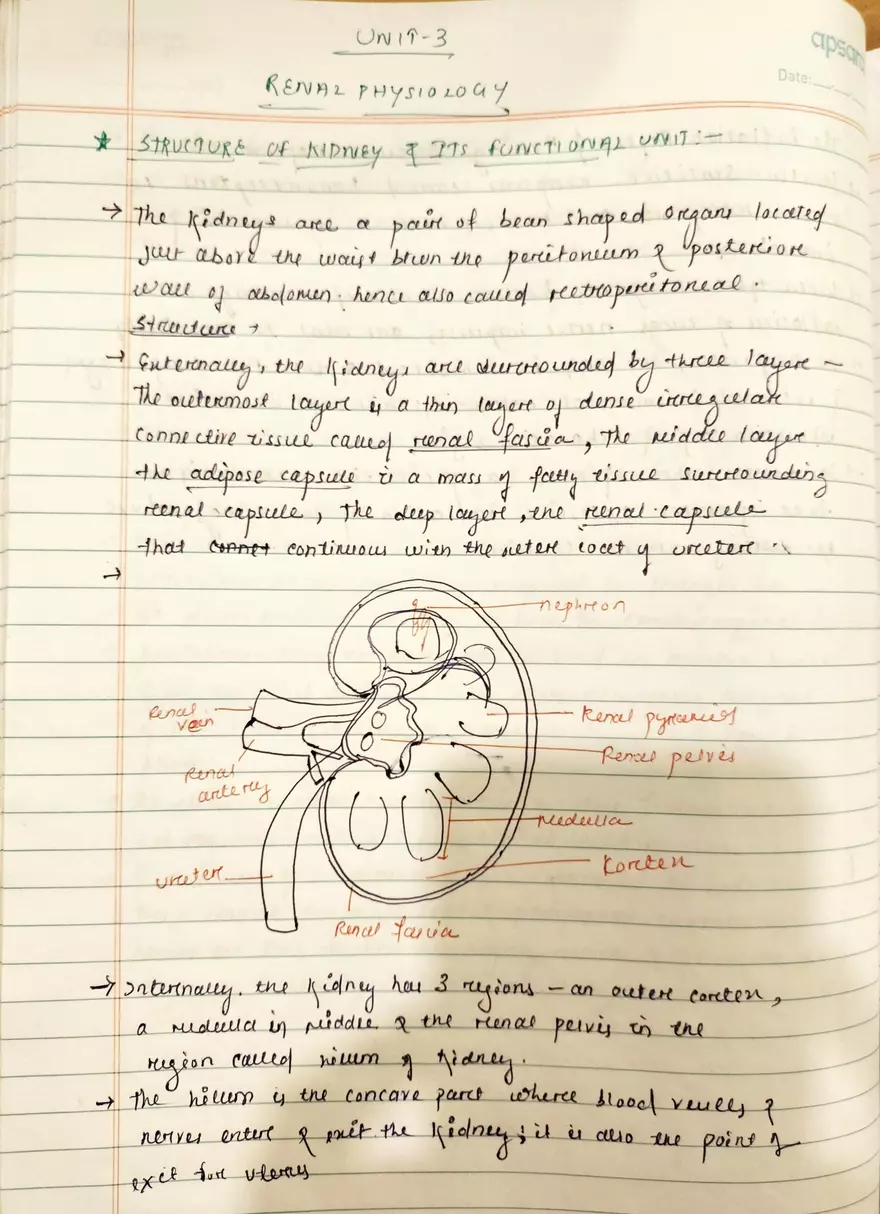 UNIT-3
apsara
Date:
RENAL PHYSIOLOGY
★ STRUCTURE OF KIDNEY & ITS FUNCTIONAL UNIT:-
→ The Kidneys are a pair of bean shaped organs located
just above the waist btwn the peritoneum & posterior
wall of abdomen. hence also called retroperitoneal.
Structure →
→ Externally, the Kidneys are surrounded by three layers –
The outermost layer is a thin layer of dense irregular
connective tissue called renal fascia, The middle layer
the adipose capsule is a mass of fatty tissue surrounding
renal capsule, The deep layer, the renal capsule
that continuous with the outer coat of ureter.
→
nephron
Renal vein
Renal pyramids
Renal pelvis
Renal artery
medulla
Kortex
ureter
Renal fascia
→ Internally. the Kidney has 3 regions – an outer cortex,
a medulla in middle & the renal pelvis in the
region called hilum of Kidney.
→ The hilum is the concave part where blood vessels &
nerves enter & exit the Kidney; it is also the point of
exit for